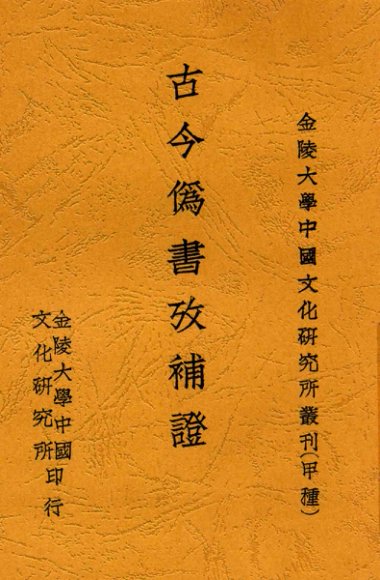 金陵大學中國文化研究所叢刊(甲種)
古今僞書攷補證
金陵大學中國
文化研究所印行